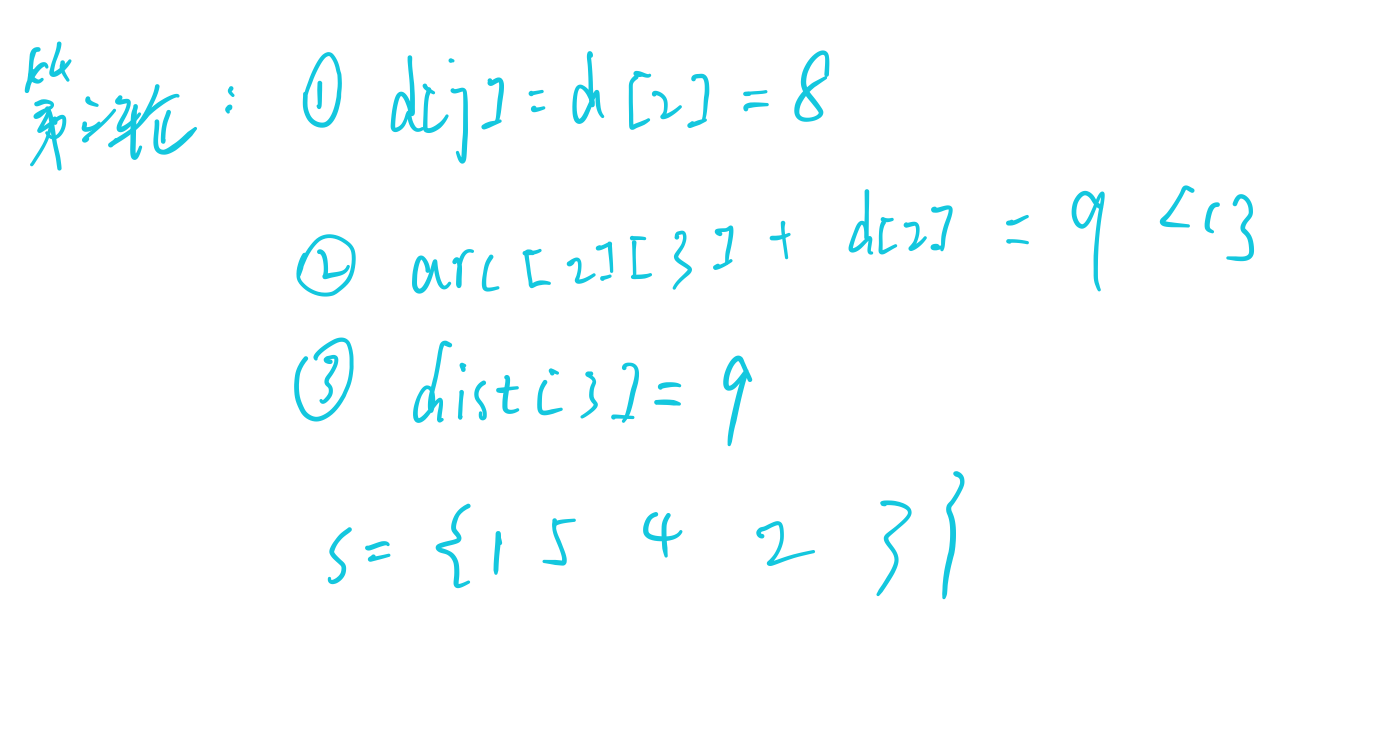 第三轮: ① d[j] = d[2] = 8
② arc[2][3] + d[2] = 9 <13
③ dist[3] = 9
S = {1 5 4 2 3}